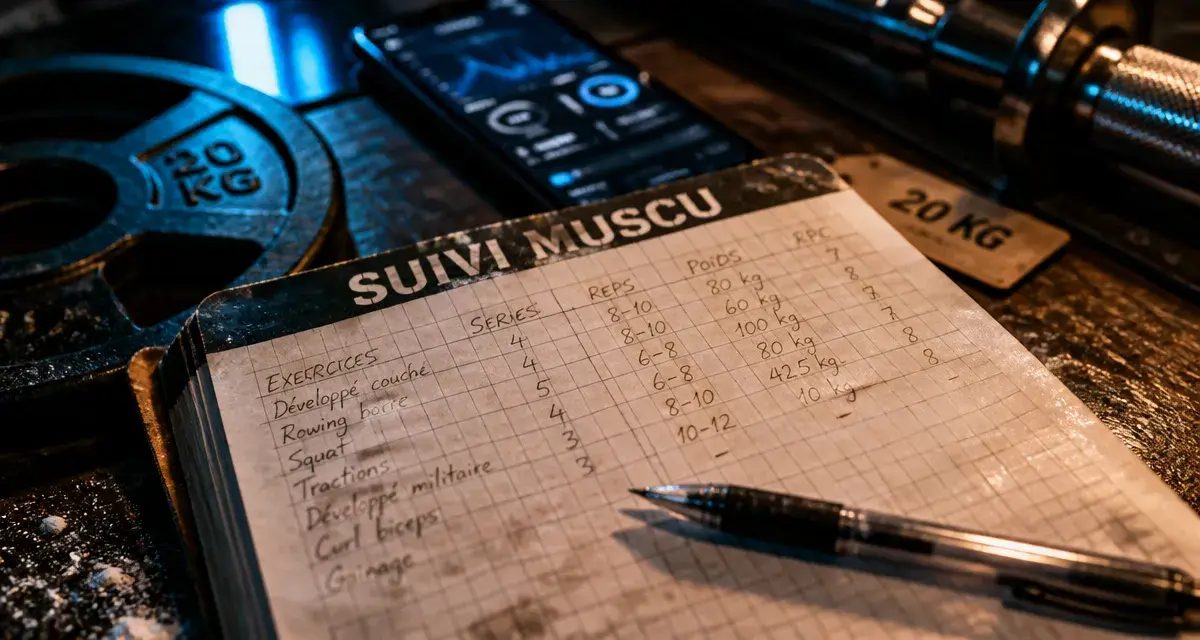 SUIVI MUSCU
EXERCICES SERIES REPS POIDS RPC
Développé couché 4 8-10 80 kg 7
Rowing barre 4 8-10 60 kg 8
Squat 5 6-8 100 kg 7
Tractions 4 6-8 80 kg 7
Développé militaire 3 8-10 425 kg 8
Curl biceps 3 10-12 10 kg 8
Gainage - - -
20 KG